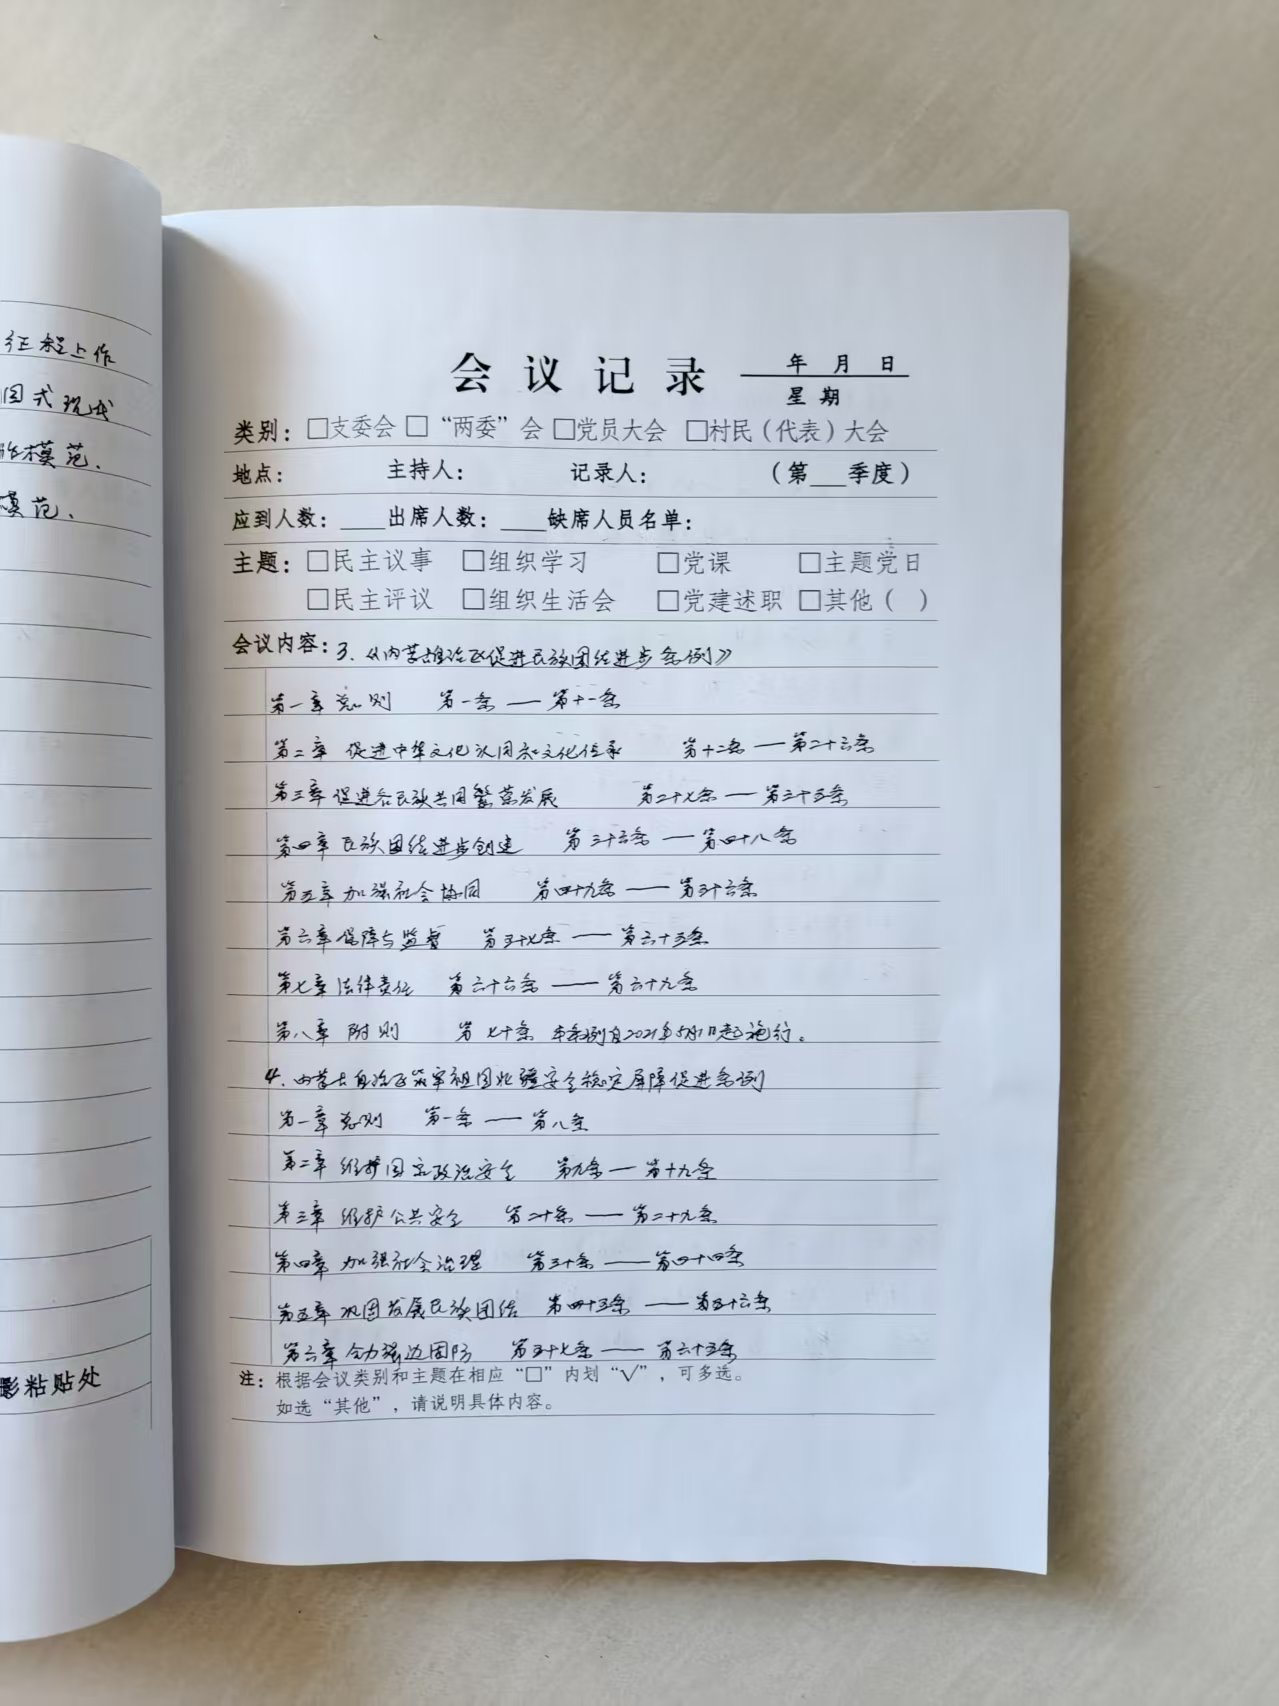 征程上作
国式现代
的模范.
模范.
影粘贴处
会议记录
年 月 日
星期
类别：□支委会 □“两委”会 □党员大会 □村民（代表）大会
地点： 主持人： 记录人： （第___季度）
应到人数：____出席人数：____缺席人员名单：
主题：□民主议事 □组织学习 □党课 □主题党日
□民主评议 □组织生活会 □党建述职 □其他（ ）
会议内容：3.《内蒙古自治区促进民族团结进步条例》
第一章 总则 第一条——第十一条
第二章 促进中华文化认同和文化传承 第十二条——第二十六条
第三章 促进各民族共同繁荣发展 第二十七条——第三十五条
第四章 民族团结进步创建 第三十六条——第四十八条
第五章 加强社会协同 第四十九条——第五十六条
第六章 保障与监督 第五十七条——第六十五条
第七章 法律责任 第六十六条——第六十九条
第八章 附则 第七十条 本条例自2021年5月1日起施行。
4.内蒙古自治区筑牢祖国北疆安全稳定屏障促进条例
第一章 总则 第一条——第八条
第二章 维护国家政治安全 第九条—第十九条
第三章 维护公共安全 第二十条——第二十九条
第四章 加强社会治理 第三十条——第四十四条
第五章 巩固发展民族团结 第四十五条——第五十六条
第六章 合力强边固防 第五十七条——第六十五条
注：根据会议类别和主题在相应“□”内划“√”，可多选。
如选“其他”，请说明具体内容。